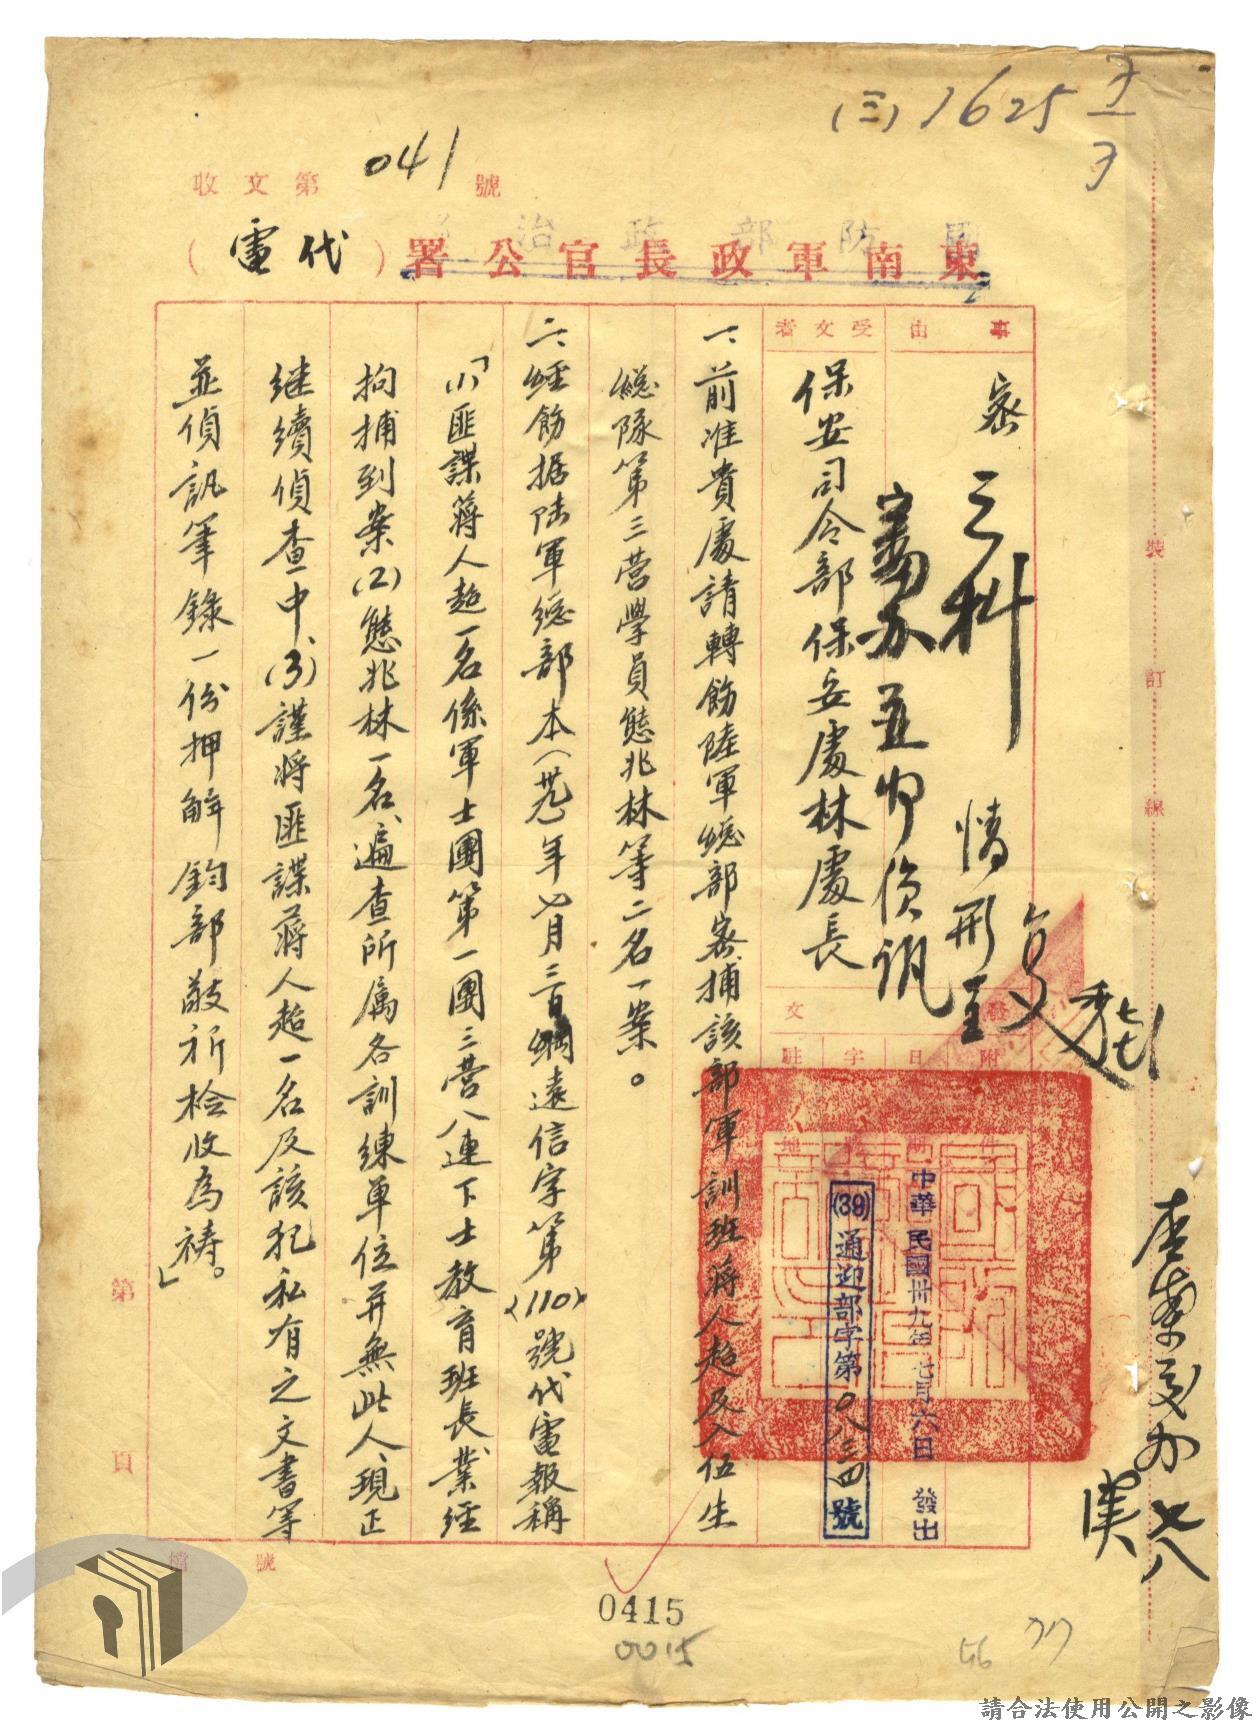 (三) 1625
收文第 041 號
國防部政治部
東南軍政長官公署
(代電)
事由
密
受文者
保安司令部保安處林處長
三科
情形呈
偵訊
附件
日期
字號
駐地
中華民國卅九年七月六日 發出
(39)通迎部字第0八三四號
一、前准貴處請轉飭陸軍總部密捕該部軍訓班蔣人超及入伍生
總隊第三營學員熊兆林等二名一案。
二、經飭据陆軍總部本(卅九)年七月三日綱遠信字第(110)號代電報稱
「(1)匪諜蔣人超一名係軍士團第一團三營八連下士教育班長業經
拘捕到案(2)熊兆林一名、遍查所属各訓練單位並無此人、現正
継續偵查中、(3)謹將匪諜蔣人超一名及該犯私有之文書等
並偵訊筆錄一份押解鈞部敬祈检收為祷。」
裝
訂
線
第
頁
檔號
0415
0015
請合法使用公開之影像